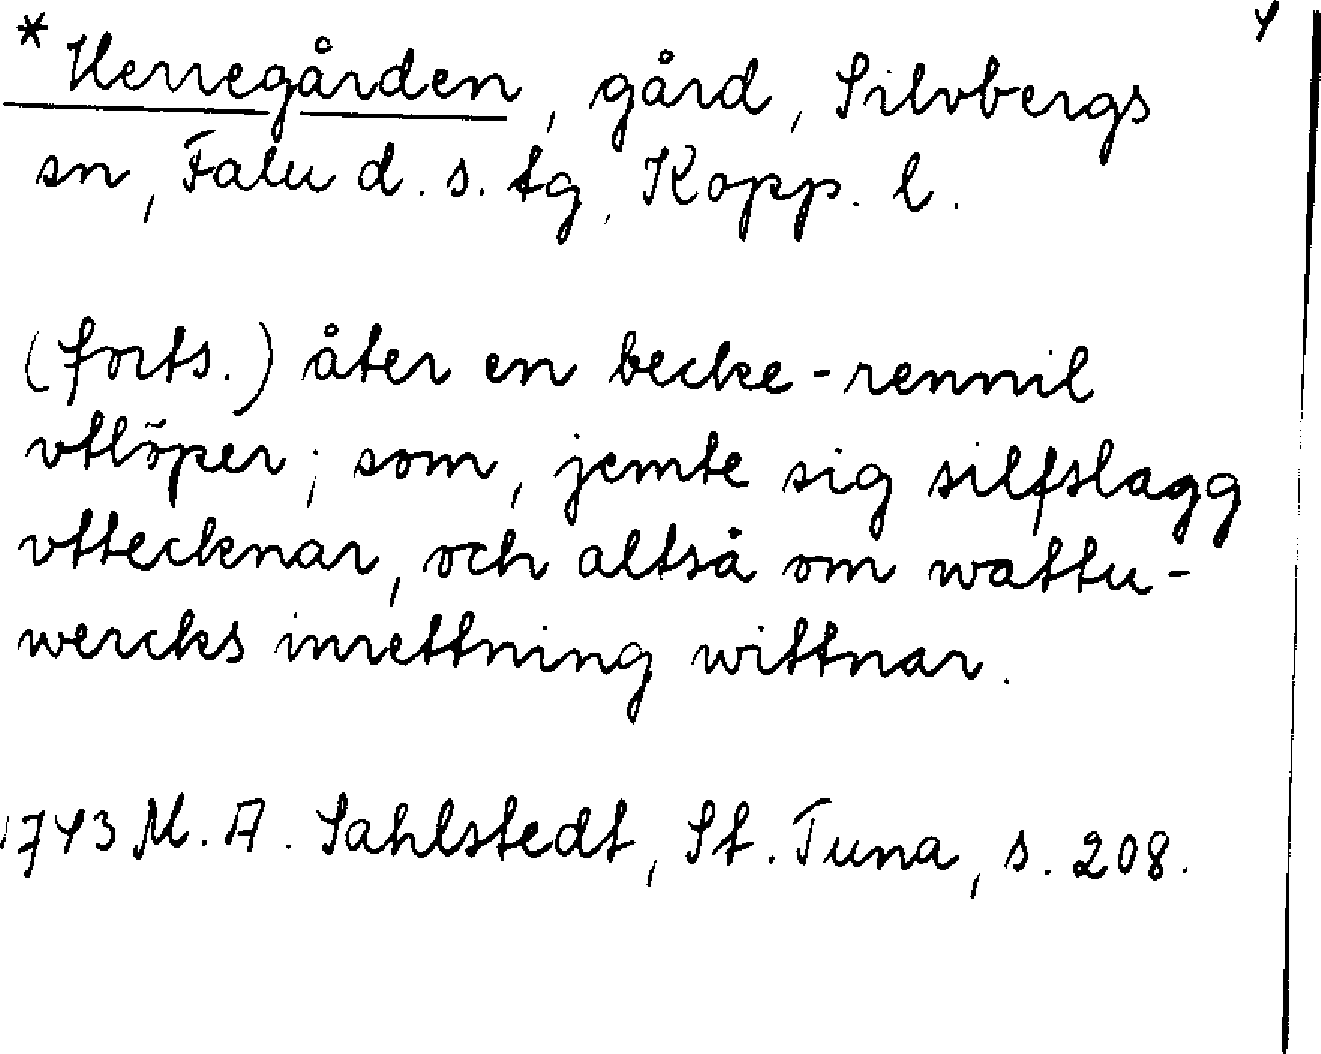 4
* Herregården, gård, Silvbergs
sn, Falu d. s. tg, Kopp. l.
(forts.) åter en becke-rennil
vtlöper; som, jemte sig silfslagg
vttecknar, och altså om wattu-
wercks inrettning wittnar.
1743 M. A. Sahlstedt, St. Tuna, s. 208.